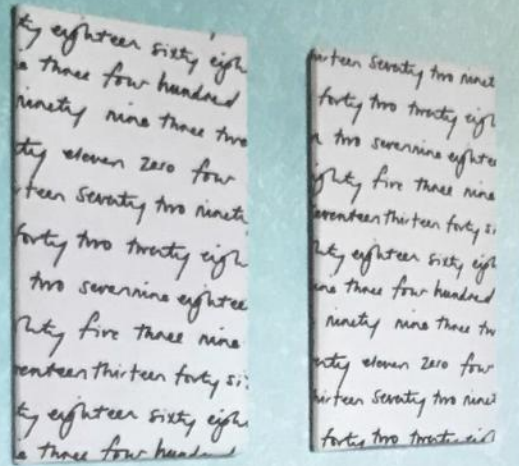 ty eighteen sixty eigh
e three four hundred
ninety nine three two
ty eleven zero four
teen seventy two ninet
forty two twenty eigh
two seven nine eightee
hty five three nine
enteen thirteen forty si
ty eighteen sixty eigh
e three four hundred
irteen seventy two ninet
forty two twenty eigh
n two seven nine eightee
ghty five three nine
eventeen thirteen forty si
hty eighteen sixty eigh
ine three four hundred
ninety nine three tw
enty eleven zero four
hirteen seventy two ninet
forty two twenty eigh